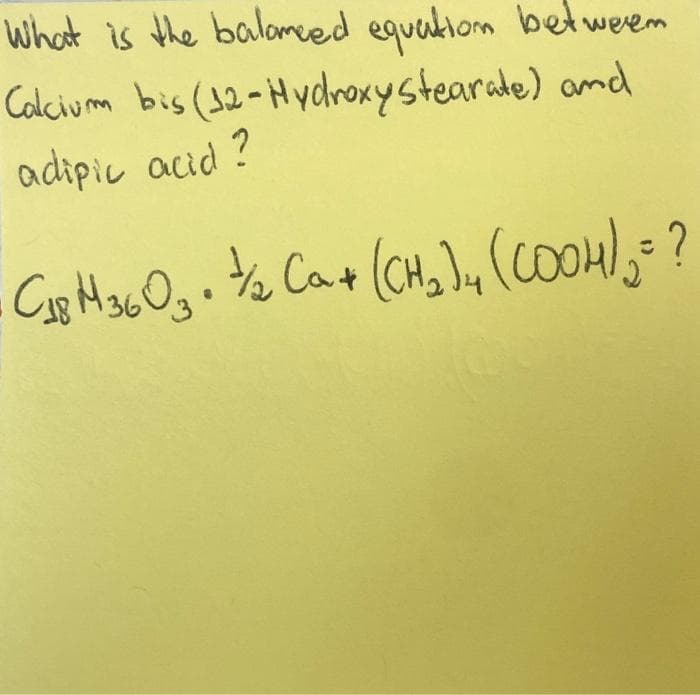 What is the balanced equation between
Calcium bis (12-Hydroxystearate) and
adipic acid ?
C₁₈H₃₆O₃ · ½ Ca + (CH₂)₄ (COOH)₂ = ?